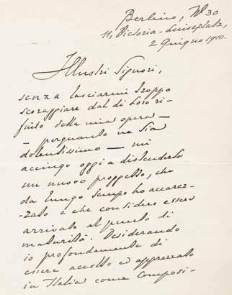 Berlino, W 30
11, Victoria-Luiseplatz,
2 Giugno 1910.
Illustri Signori,
senza lasciarmi troppo
scoraggiare dal di Loro ri-
fiuto della mia opera —
— per quanto ne sia
dolentissimo — mi
accingo oggi a distenderLe
un nuovo progetto, che
da lungo tempo ho accarez-
zato e che considero esser
arrivato al punto di
maturità. Desiderando
io profondamente di
essere accolto ed approvato
in Italia come composi-